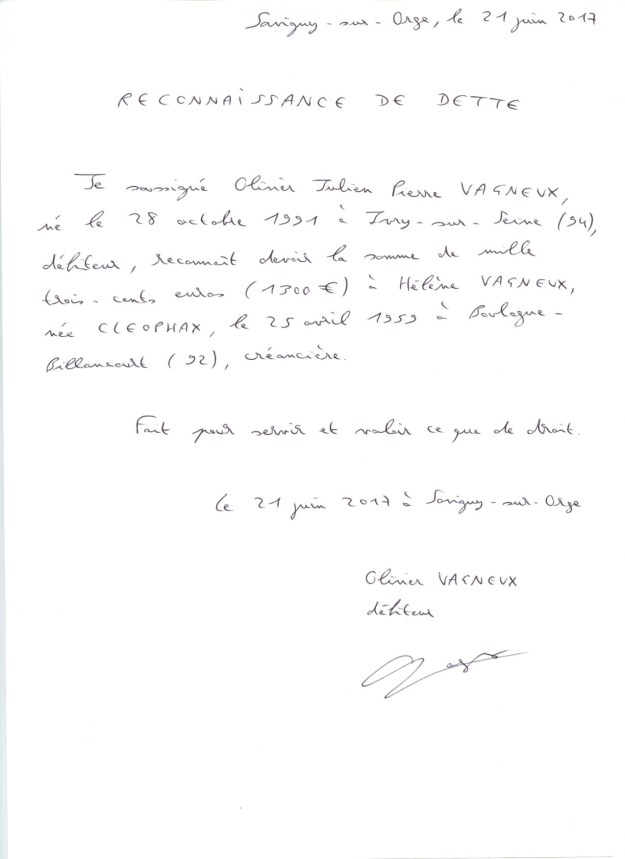 Savigny-sur-Orge, le 21 juin 2017
RECONNAISSANCE DE DETTE
Je soussigné Olivier Julien Pierre VAGNEUX,
né le 28 octobre 1991 à Ivry-sur-Seine (94),
débiteur, reconnaît devoir la somme de mille
trois-cents euros (1300 €) à Hélène VAGNEUX,
née CLEOPHAX, le 25 avril 1959 à Boulogne-
Billancourt (92), créancière.
Fait pour servir et valoir ce que de droit.
Le 21 juin 2017 à Savigny-sur-Orge
Olivier VAGNEUX
débiteur